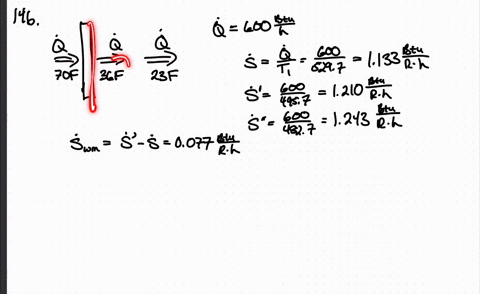 146.
Q̇ Q̇ Q̇
70F 36F 23F
Q̇ = 600 Btu/h
Ṡ = Q̇/T₁ = 600/529.7 = 1.133 Btu/R·h
Ṡ' = 600/495.7 = 1.210 Btu/R·h
Ṡ" = 600/482.7 = 1.243 Btu/R·h
Ṡwm = Ṡ' - Ṡ = 0.077 Btu/R·h